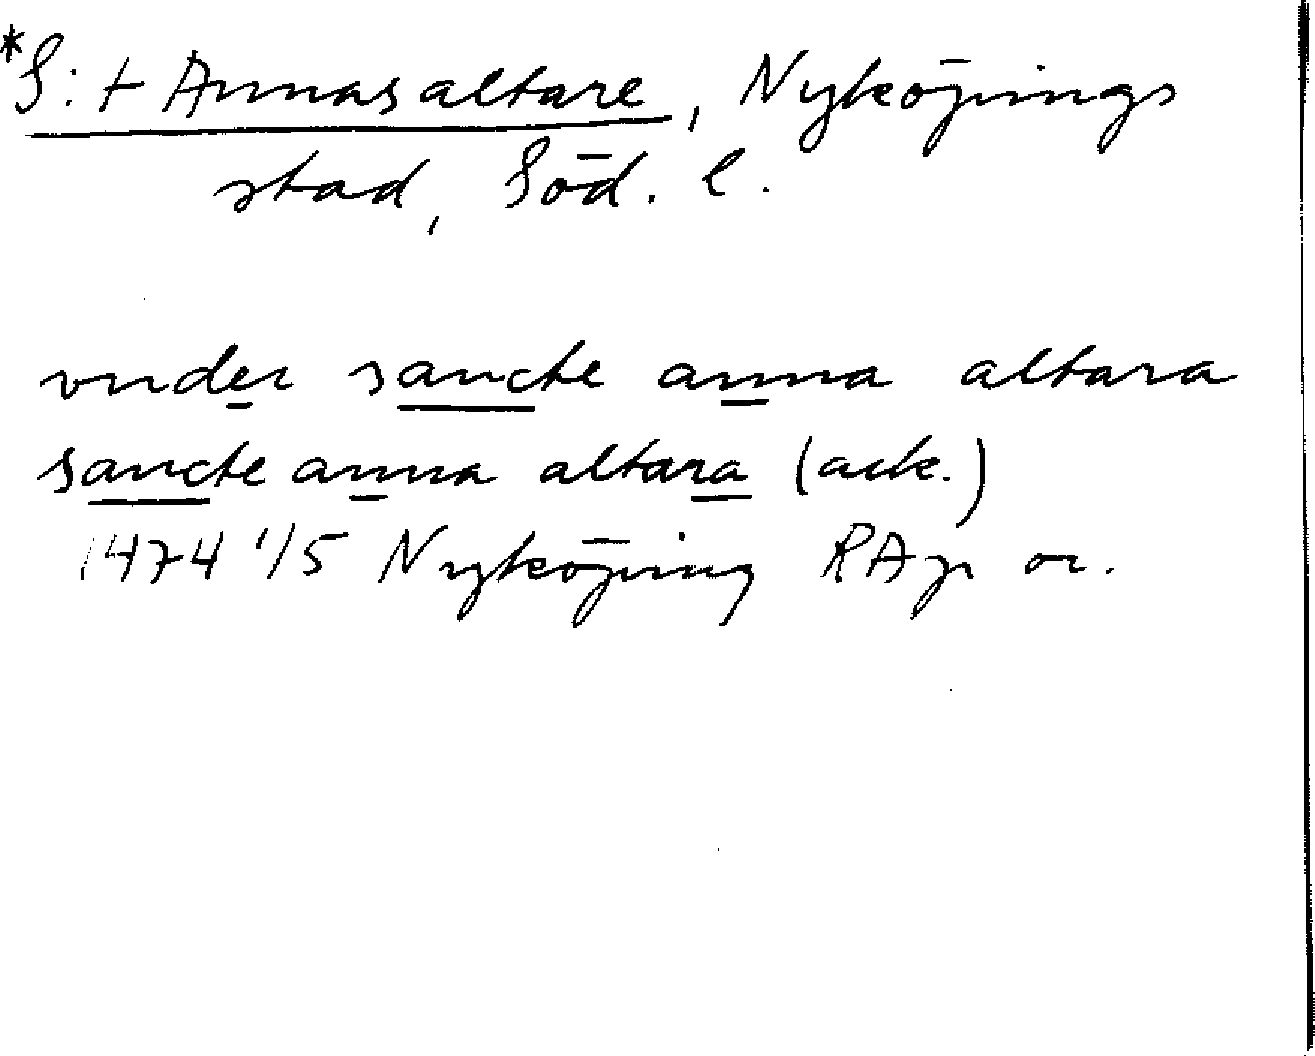 *S:t Annas altare, Nyköpings
stad, Söd. l.
vnder sancte anna altara
sancte anna altara (ack.)
1474 1/5 Nyköping RAp or.